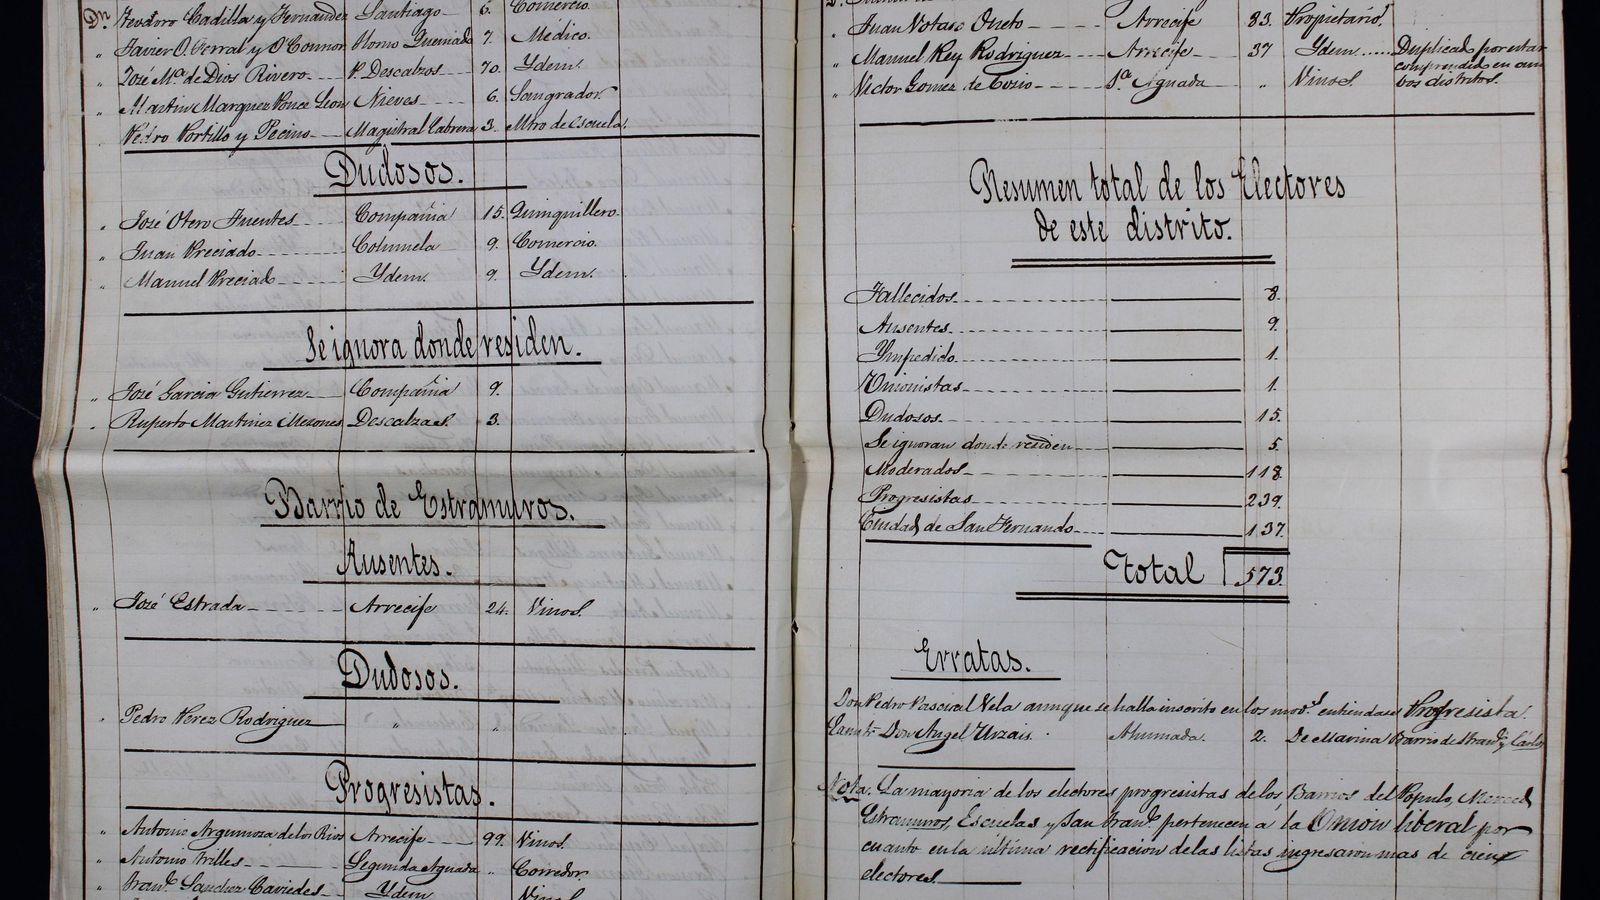 Dn. Teodoro Cadilla y Fernandez Santiago 6. Comercio.
" Javier O. Ferral y O'Connor Horno Quemado 7. Médico.
" José Mª de Dios Rivero P. Descalzos 70. Ydem.
" Martin Marquez Ponce Leon Nieves 6. Sangrador.
Pedro Portillo y Pecino Magistral Cabrera 3. Mtro de Escuela.
Dudosos.
" José Otero Fuentes Compañia 15. Quinquillero.
" Juan Preciado Columela 9. Comercio.
" Manuel Preciado Ydem. 9. Ydem.
Se ignora donde residen.
" José Garcia Gutierrez Compañia 9.
" Ruperto Martinez Mezones Descalzas. 3.
Barrio de Estramuros.
Ausentes.
" José Estrada Arrecife 24. Vinos.
Dudosos.
" Pedro Perez Rodriguez " "
Progresistas.
" Antonio Argumoza de los Rios Arrecife 99. Vinos.
" Antonio Trilles Segunda Aguada " Corredor.
" Franco. Sanchez Caviedes Ydem Vinos
" Juan Notaro Oneto Arrecife 83. Propietario.
" Manuel Rey Rodriguez Arrecife 37 Ydem Duplicado por estar
comprendido en am
" Victor Gomez de Cozio Sª Aguada " Vinos. bos distritos.
Resumen total de los Electores
de este distrito.
Fallecidos 8.
Ausentes 9.
Ympedido 1.
Unionistas 1.
Dudosos 15.
Se ignoran donde residen 5.
Moderados 118.
Progresistas 239.
Ciudad de San Fernando 137.
Total 573.
Erratas.
Don Pedro Pascual Vela aunque se halla inscrito en los mods. entiendase Progresista.
Don Angel Urzaiz. Ahumada. 2. De Marina Barrio de Frando. y Cárlos
Nota. La mayoria de los electores progresistas de los Barrios del Pópulo, Merced
Estramuros, Escuelas y San Franco. pertenecen á la Union liberal por
cuanto en la última rectificacion de las listas ingresaron mas de cien
electores.